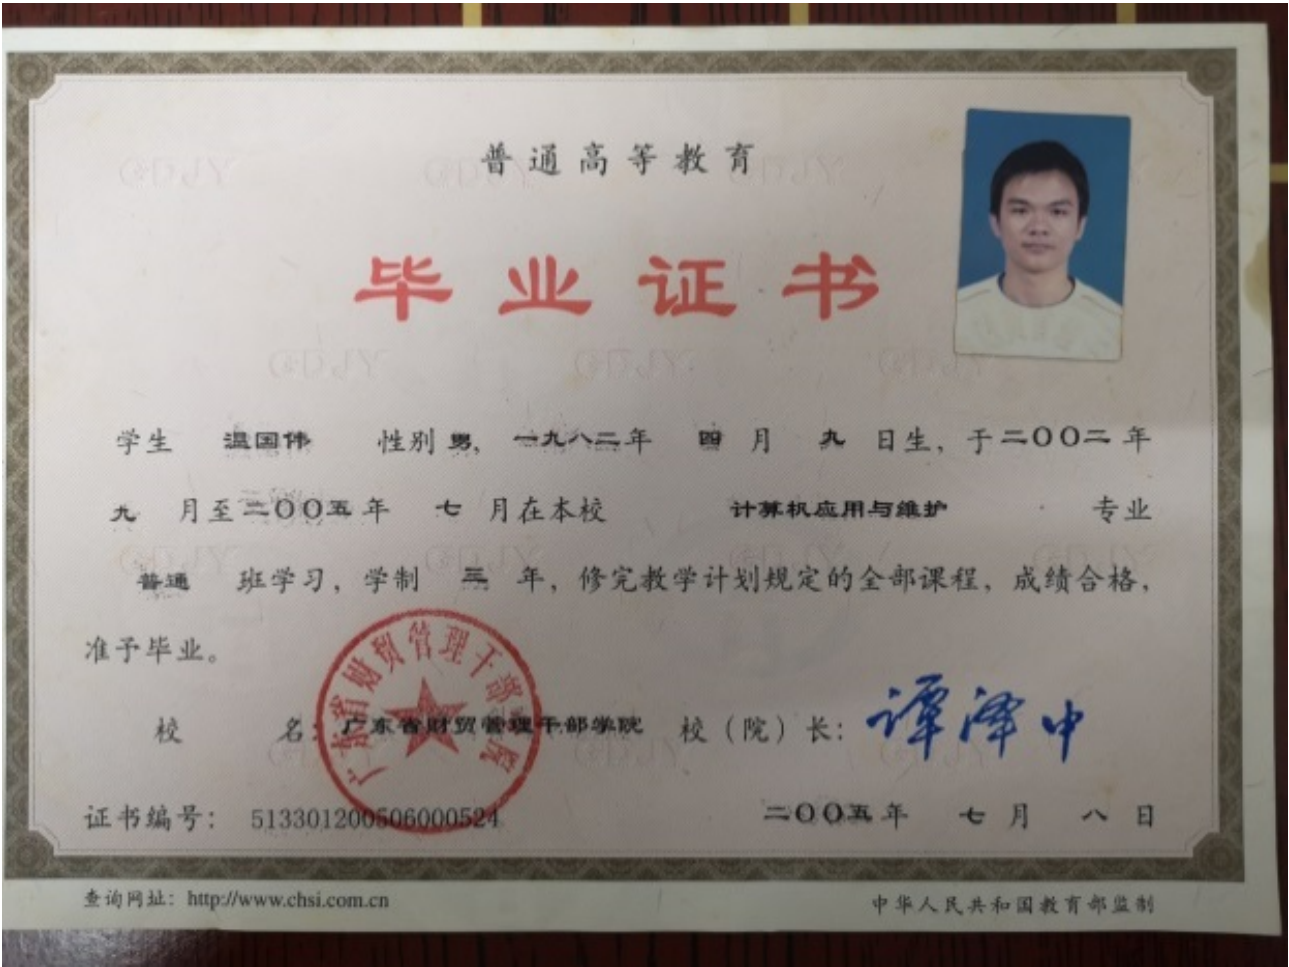 普通高等教育
毕业证书
学生 温国伟 性别 男, 一九八二年 四 月 九 日生, 于二〇〇二年
九 月至二〇〇五年 七 月在本校 计算机应用与维护 专业
普通 班学习, 学制 三 年, 修完教学计划规定的全部课程, 成绩合格,
准予毕业。
广东省财贸管理干部学院
校 名: 广东省财贸管理干部学院 校(院)长: 谭泽中
证书编号: 513301200506000524 二〇〇五年 七月 八日
查询网址: http://www.chsi.com.cn 中华人民共和国教育部监制